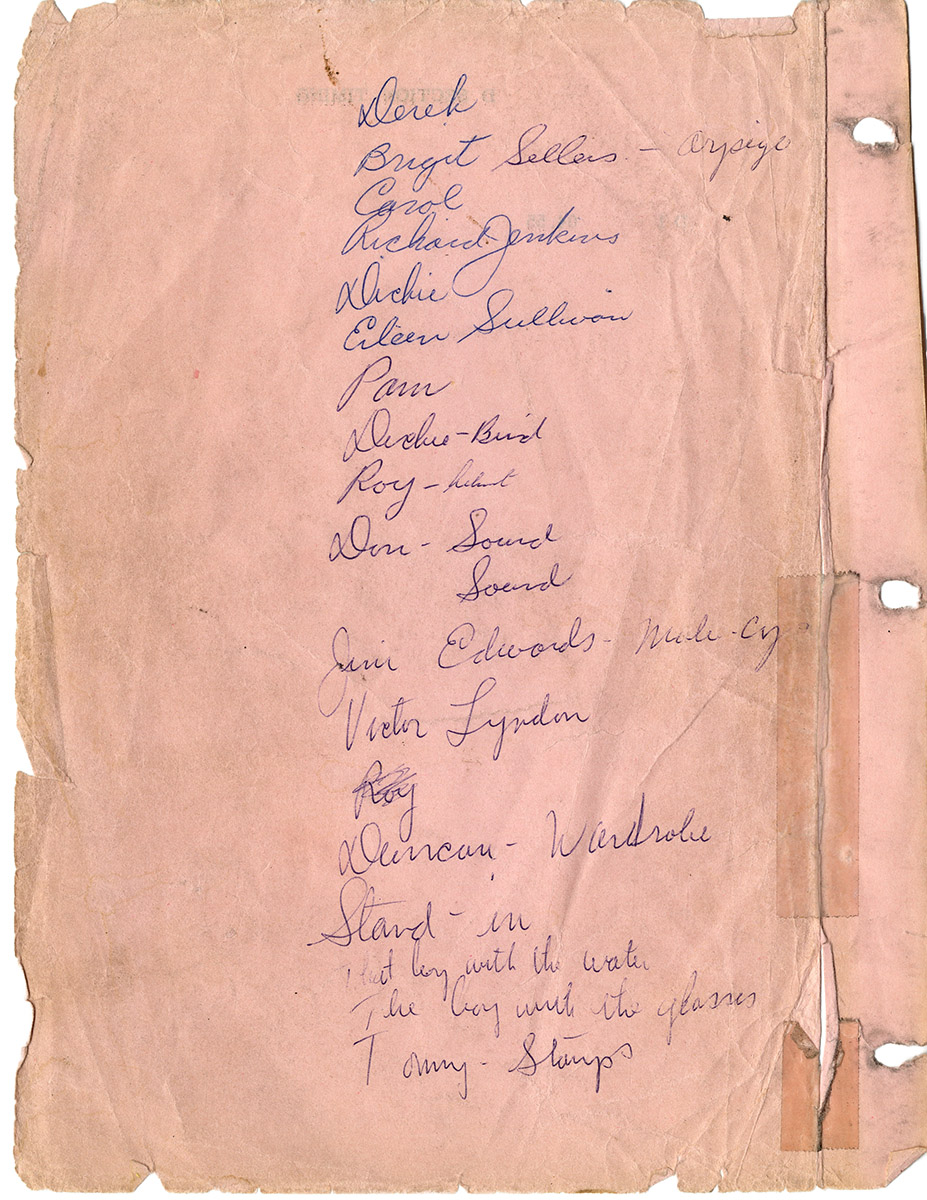 Derek
Brigit Sellers -
Carol
Richard Jenkins
Dickie
Eileen Sullivan
Pam
Dickie - Bird
Roy -
Don - Sound
Sound
Jim Edwards -
Victor Lyndon
Roy
Duncan - Wardrobe
Stand - in
That boy with the water
The boy with the glasses
Tommy - Stamps